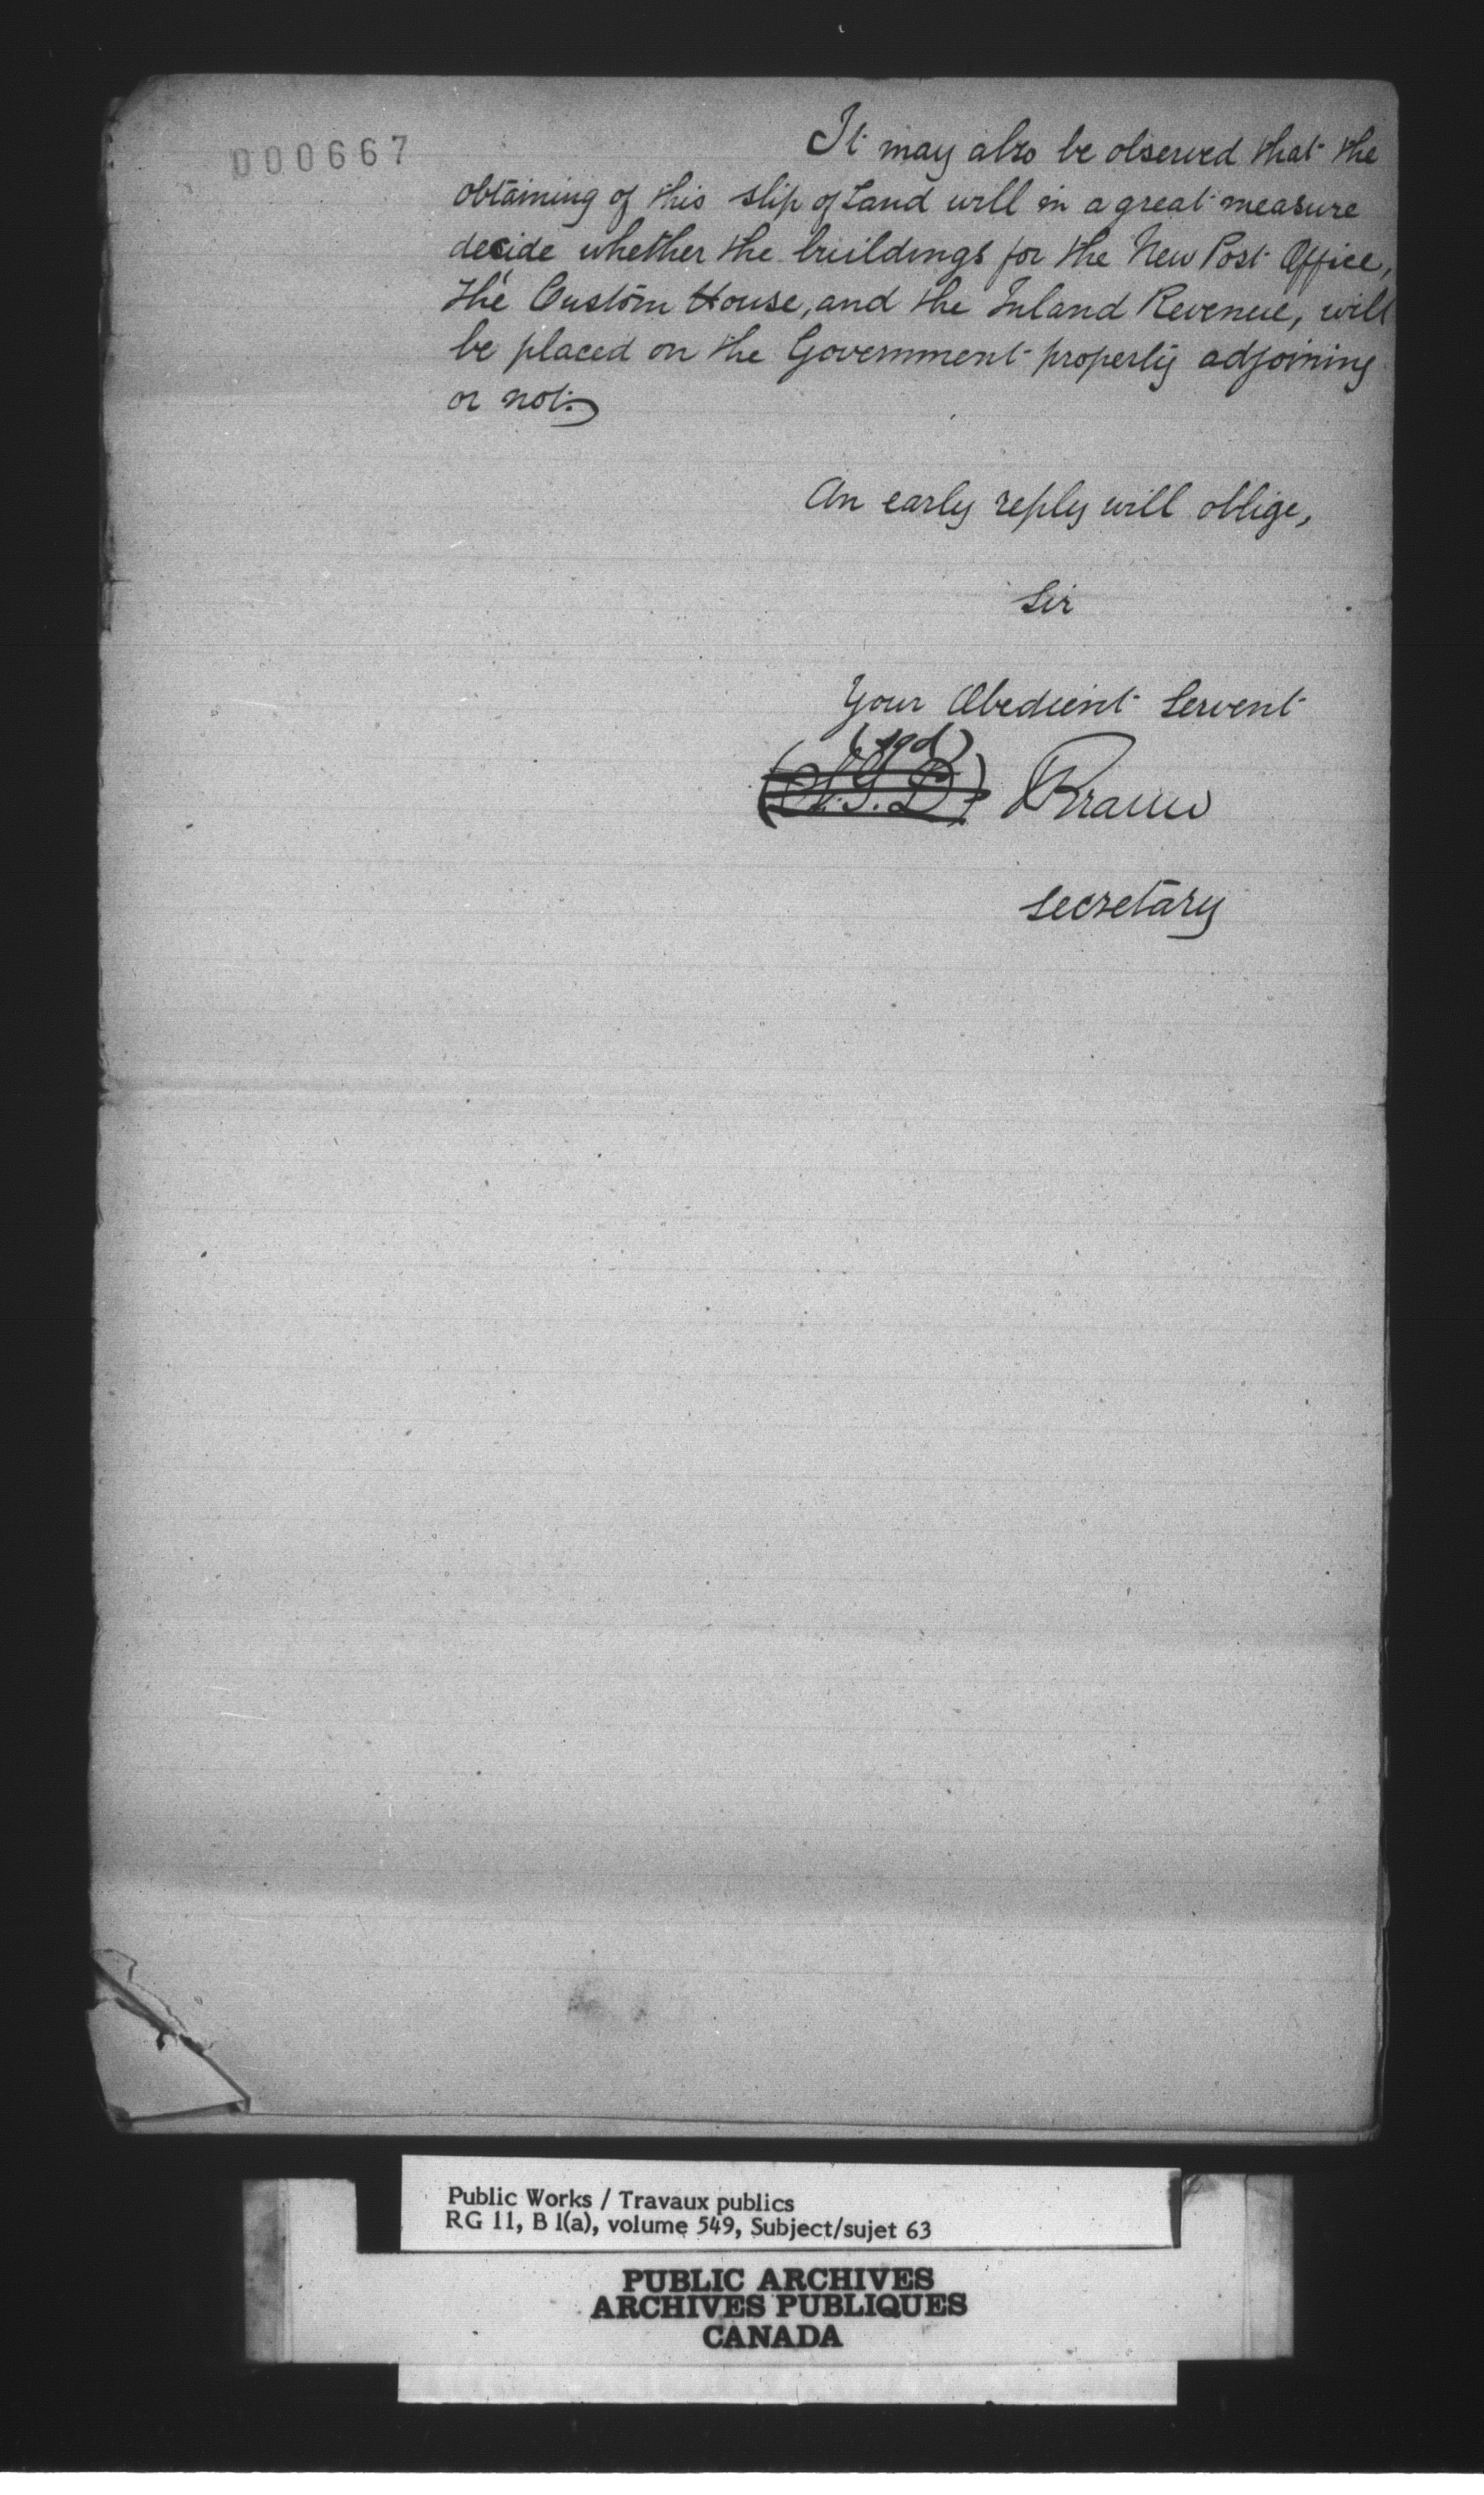 000667
It may also be observed that the
obtaining of this slip of Land will in a great measure
decide whether the buildings for the New Post Office,
the Custom House, and the Inland Revenue, will
be placed on the Government property adjoining
or not.
An early reply will oblige,
Sir
Your Obedient Servent
(sgd)
Braun
Secretary
Public Works / Travaux publics
RG 11, B 1(a), volume 549, Subject/sujet 63
PUBLIC ARCHIVES
ARCHIVES PUBLIQUES
CANADA